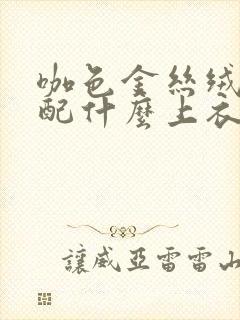 咖色金絲絨
配什麼上衣
讓威亞雷雷山